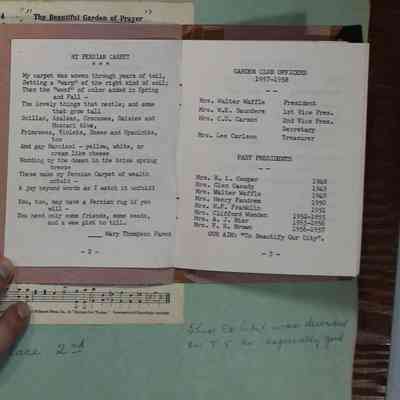 The Beautiful Garden of Prayer
MY PERSIAN CARPET
* * *
My carpet was woven through years of toil,
Setting a "warp" of the right kind of soil;
Then the "woof" of color added in Spring
and Fall -
The lovely things that nestle; and some
that grow tall
Scillas, Azaleas, Crocuses, Daisies and
Muscari blue,
Primroses, Violets, Roses and Hyacinths,
too
And gay Narcissi - yellow, white, or
cream like cheese
Nodding by the dozen in the brisk spring
breeze
These make my Persian Carpet of wealth
untold -
A joy beyond words as I watch it unfold!
You, too, may have a Persian rug if you
will -
You need only some friends, some seeds,
and a wee plot to till.
Mary Thompson
- 2 -
GARDEN CLUB OFFICERS
1957-1958
- -
Mrs. Walter Waffle President
Mrs. W.E. Saunders 1st Vice Pres.
Mrs. C.D. Carmot 2nd Vice Pres.
Secretary
Mrs. Leo Carlson Treasurer
- -
PAST PRESIDENTS
- -
Mrs. R. L. Cooper 1948
Mrs. Glen Canady 1949
Mrs. Walter Waffle 1949
Mrs. Henry Fandrem 1950
Mrs. H.F. Franklin 1951
Mrs. Clifford Wooden 1952-1953
Mrs. A. J. Bier 1953-1956
Mrs. F. E. Brown 1956-1957
OUR AIM: "To Beautify Our City".
- 3 -
place 2nd
was
especially good